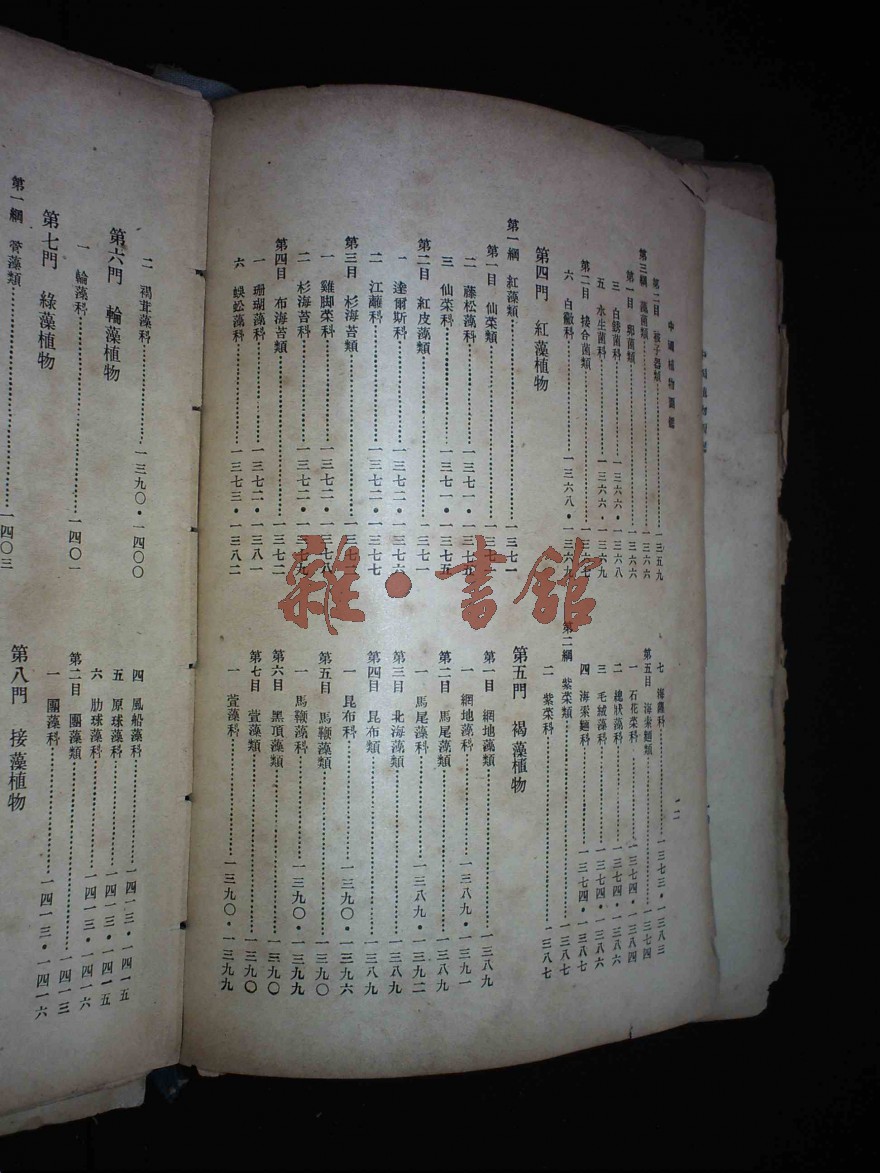 中國植物圖鑑
第二目 子器類……一三五九
第三綱 藻菌類……一三六六
第一目 卵菌類……一三六六
三 白銹菌科……一三六六・一三六八
五 水生菌科……一三六六・一三六九
第二目 接合菌類……一三六七
六 白黴科……一三六八・一三六九
第四門 紅藻植物
第一綱 紅藻類……一三七一
第一目 仙菜類……一三七一
二 藤松藻科……一三七一・一三七五
三 仙菜科……一三七一・一三七五
第二目 紅皮藻類……一三七一
一 達爾斯科……一三七二・一三七六
二 江蘺科……一三七二・一三七七
第三目 杉海苔類……一三七二
一 雞脚菜科……一三七二・一三七八
二 杉海苔科……一三七二・一三七九
第四目 布海苔類……一三七二
一 珊瑚藻科……一三七二・一三八一
六 蜈蚣藻科……一三七三・一三八二
七 海蘿科……一三七三・一三八三
第五目 海索麵類……一三七四
一 石花菜科……一三七四・一三八四
二 總狀藻科……一三七四・一三八六
三 毛絨藻科……一三七四・一三八六
四 海索麵科……一三七四・一三八七
第二綱 紫菜類……一三八七
二 紫菜科……一三八七
第五門 褐藻植物
第一目 網地藻類……一三八九
一 網地藻科……一三八九・一三九一
第二目 馬尾藻類……一三八九
一 馬尾藻科……一三八九・一三九二
第三目 北海藻類……一三八九
第四目 昆布類……一三八九
一 昆布科……一三九〇・一三九六
第五目 馬鞭藻類……一三九〇
一 馬鞭藻科……一三九〇・一三九九
第六目 黑頂藻類……一三九〇
第七目 萱藻類……一三九〇
一 萱藻科……一三九〇・一三九九
二 褐茸藻科……一三九〇・一四〇〇
第六門 輪藻植物
一 輪藻科……一四〇一
第七門 綠藻植物
第一綱 管藻類……一四〇三
四 風船藻科……一四一三・一四一五
五 原球藻科……一四一三・一四一五
六 肋球藻科……一四一三・一四一六
第二目 團藻類……一四一三
一 團藻科……一四一三・一四一六
第八門 接藻植物
雜・書館